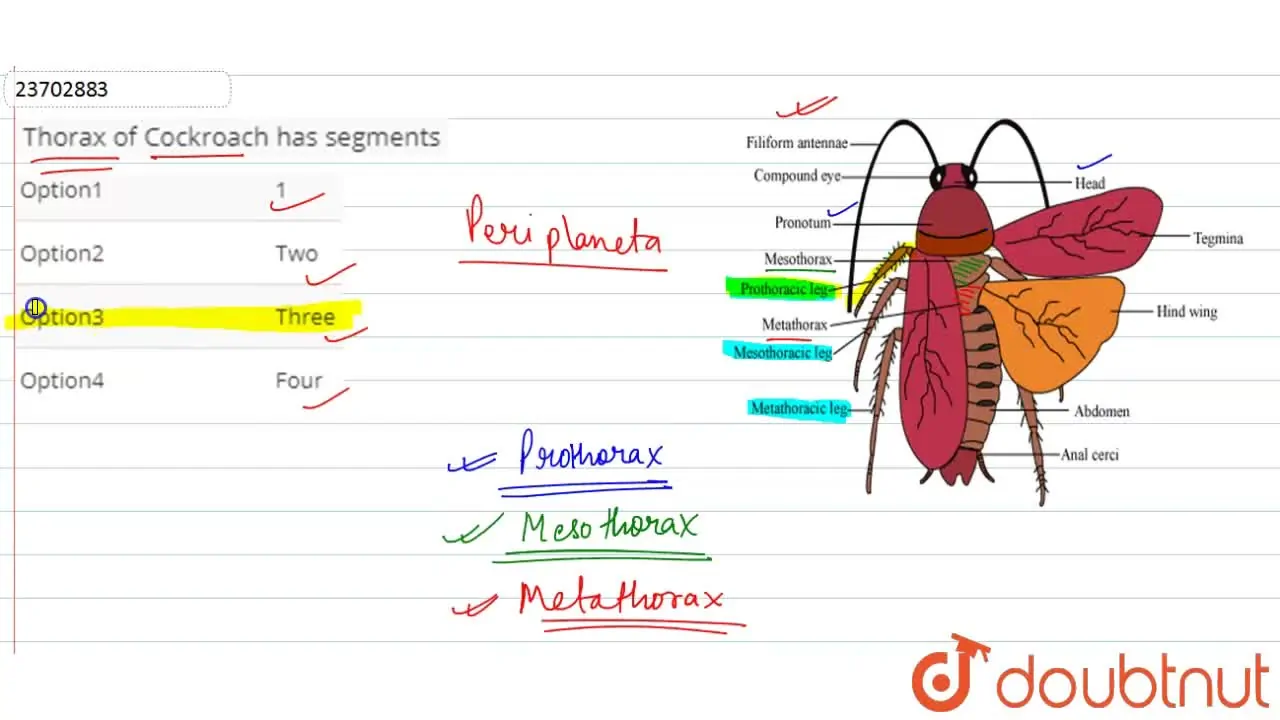 23702883
Thorax of Cockroach has segments
Option1 1
Option2 Two
Option3 Three
Option4 Four
Periplaneta
Prothorax
Mesothorax
Metathorax
Filiform antennae
Compound eye
Head
Pronotum
Tegmina
Mesothorax
Prothoracic leg
Hind wing
Metathorax
Mesothoracic leg
Metathoracic leg
Abdomen
Anal cerci
doubtnut